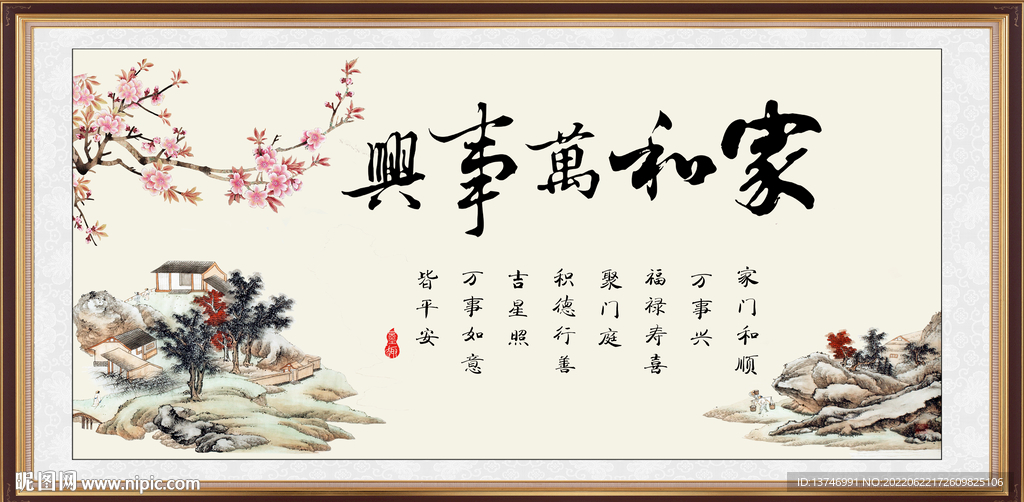 家和萬事興
家门和顺
万事兴
福禄寿喜
聚门庭
积德行善
吉星照
万事如意
皆平安
昵图网 www.nipic.com
ID:13746991 NO:20220622172609825106